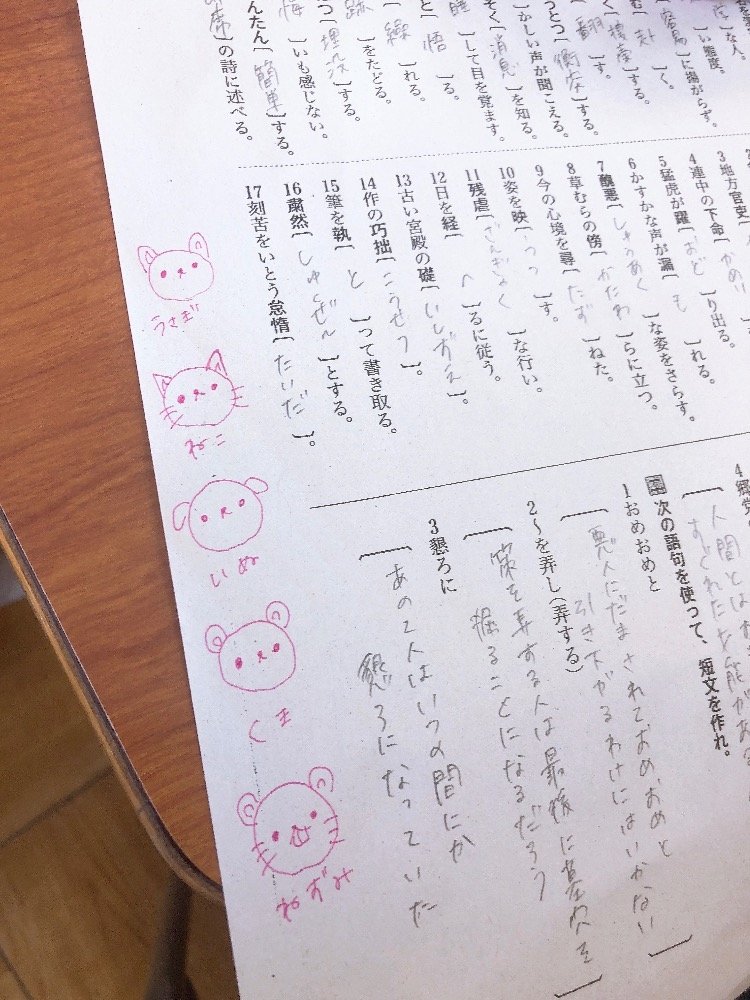 い態度。
に揚がらず。
く。
する。
す。
する。
かしい声が聞こえる。
消息〕を知る。
して目を覚ます。
悟〕る。
れる。
をたどる。
埋没〕する。
いも感じない。
んたん〔簡単〕する。
〕の詩に述べる。
3地方官吏
4連中の下命〔かめい
5猛虎が躍〔おど〕り出る。
6かすかな声が漏〔も〕れる。
7醜悪〔しゅうあく〕な姿をさらす。
8草むらの傍〔かたわ〕らに立つ。
9今の心境を尋〔たず〕ねた。
10姿を映〔うつ〕す。
11残虐〔ざんぎゃく〕な行い。
12日を経〔へ〕るに従う。
13古い宮殿の礎〔いしずえ〕。
14作の巧拙〔こうせつ〕。
15筆を執〔と〕って書き取る。
16粛然〔しゅくぜん〕とする。
17刻苦をいとう怠惰〔たいだ〕。
4郷党
〔人間とは
すぐれた才能がある
次の語句を使って、短文を作れ。
1おめおめと
〔悪人にだまされておめおめと
引き下がるわけにはいかない〕
2〜を弄し(弄する)
〔策を弄する人は最後に墓穴を
掘ることになるだろう〕
3懇ろに
〔あの2人はいつの間にか
懇ろになっていた
うさぎ
ねこ
いぬ
くま
ねずみ